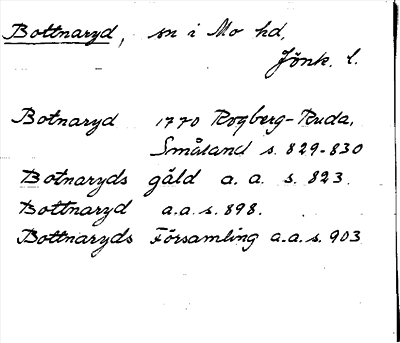 Bottnaryd, sn i Mo hd,
Jönk. l.
Botnaryd 1770 Rogberg-Ruda,
Småland s. 829-830
Botnaryds gäld a. a. s. 823.
Bottnaryd a.a. s. 898.
Bottnaryds Församling a.a. s. 903